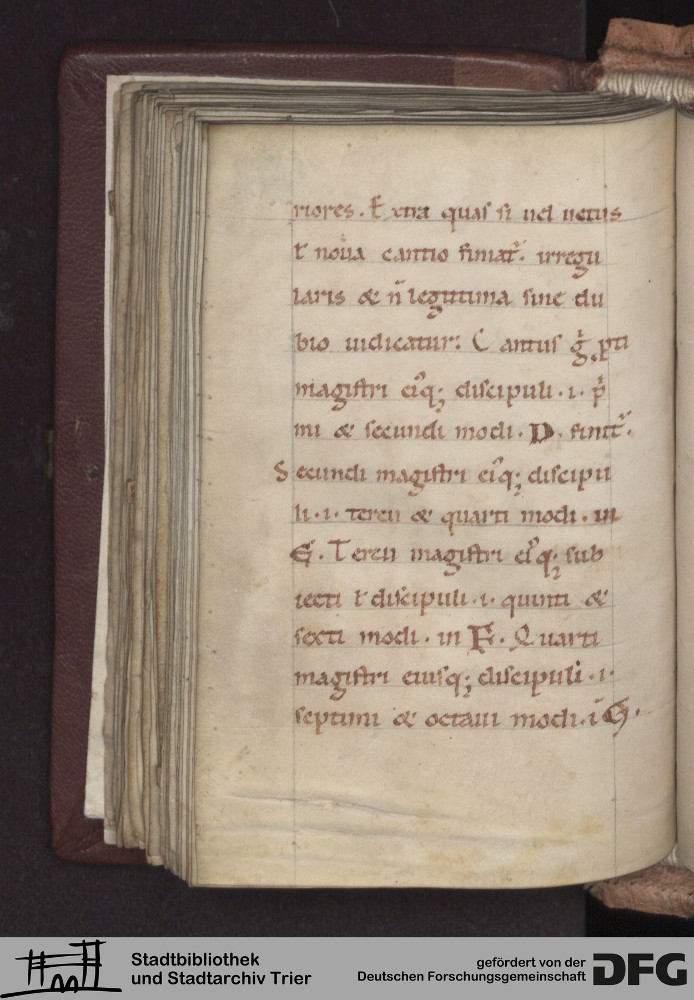 riores. Extra quas si uel uetus
ł noua cantio finiat̃. irregu
laris & n̄ legitima sine du
bio iudicatur: Cantus g̃
magistri ei9q; discipuli .i. p̃
mi & secundi modi. D. finit̃.
Secundi magistri ei9q; discipu
li .i. tercii & quarti modi. in
E. Tercii magistri ei9q; sub
iecti ł discipuli .i. quinti &
sexti modi. in F. Quarti
magistri eiusq; discipuli .i.
septimi & octaui modi. ī G.
Stadtbibliothek
und Stadtarchiv Trier
gefördert von der
Deutschen Forschungsgemeinschaft
DFG